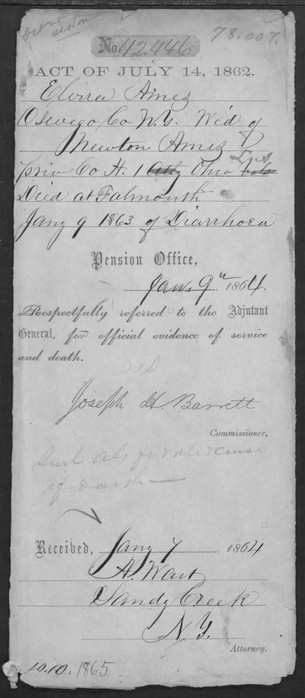 78.007.
No. 42446
ACT OF JULY 14, 1862.
Elvira Ames
Oswego Co N.Y. Wid. of
Newton Ames
priv Co H. 1 Ohio L.A.
Died at Falmouth
Jany 9 1863 of Diarrhoea
Pension Office,
Jan. 9th 1864.
Respectfully referred to the Adjutant
General, for official evidence of service
and death.
Joseph H Barrett
Commissioner.
of death
Received, Jany 7 1864
A. Wart
Sandy Creek
N.Y.
Attorney.
10.10.1865